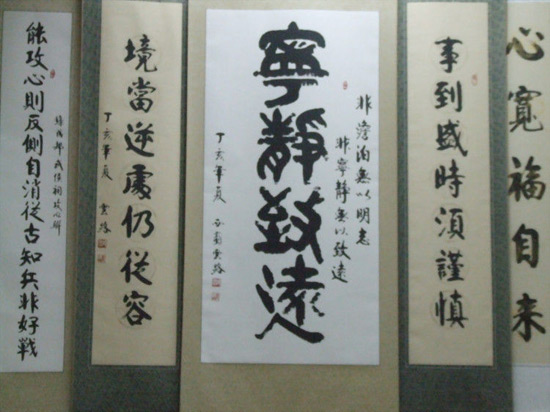 心寬福自来
事到盛時須謹慎
非澹泊無以明志
非寧靜無以致遠
寧靜致遠
丁亥 夏
境當逆處仍從容
丁亥 夏
錄成都武侯祠攻心聯
能攻心則反側自消從古知兵非好戰